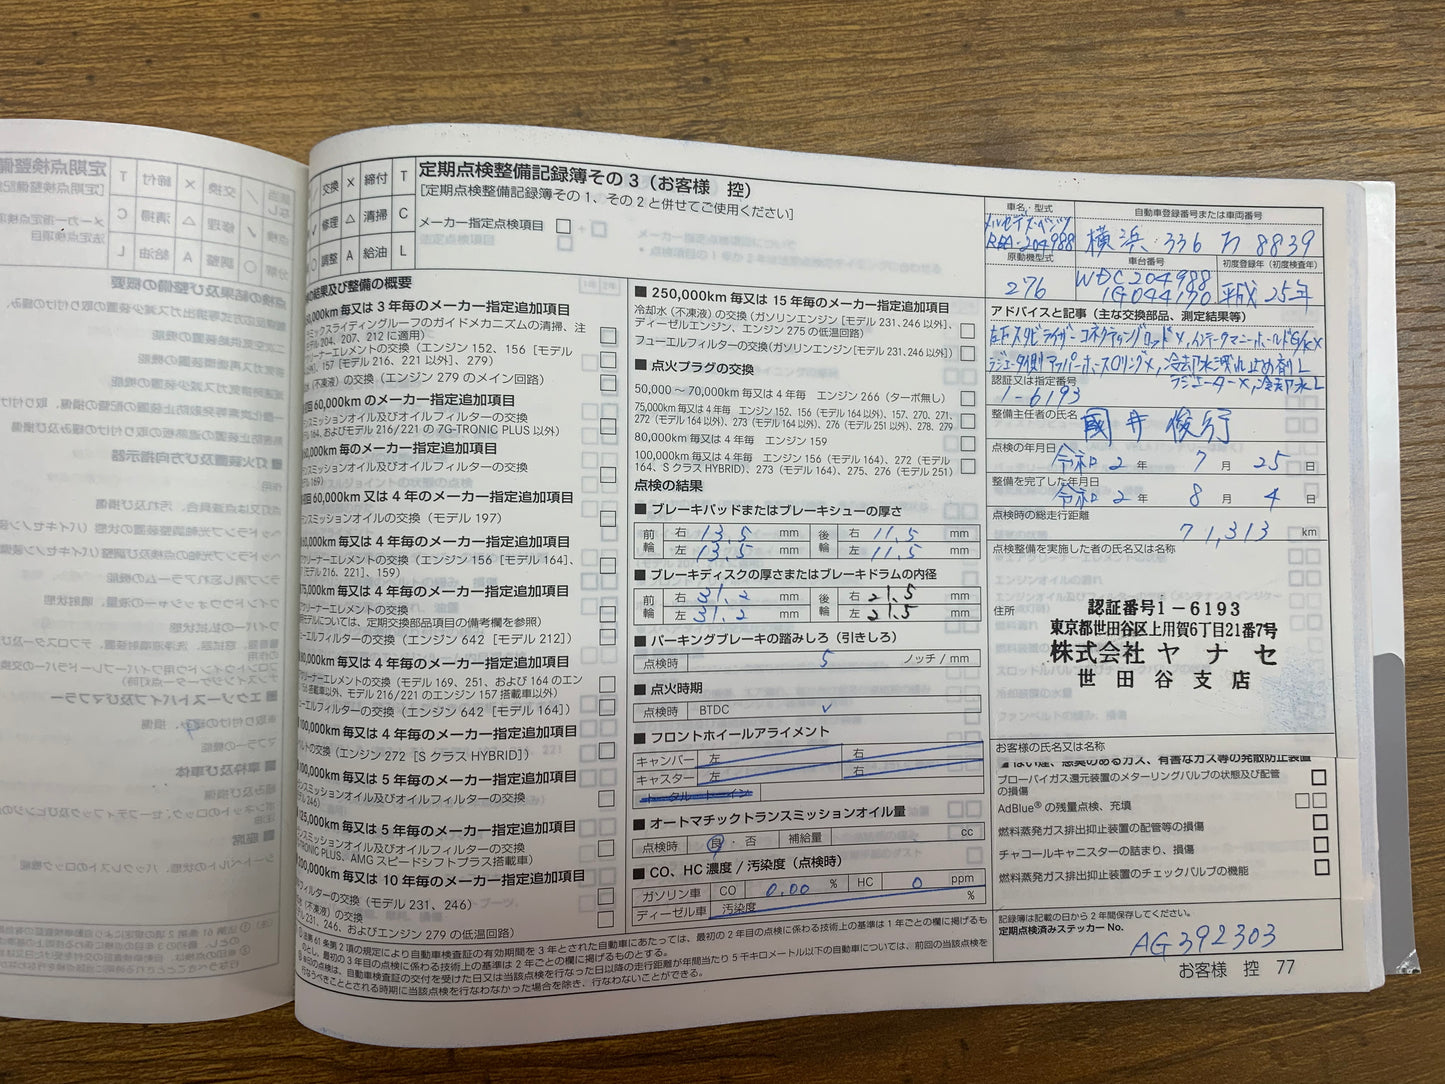 交換 X 締付 T
修理 △ 清掃 C
○ 調整 A 給油 L
定期点検整備記録簿その 3（お客様 控）
[定期点検整備記録簿その 1、その 2 と併せてご使用ください]
メーカー指定点検項目
法定点検項目
の結果及び整備の概要
0,000km 又は 3 年毎のメーカー指定追加項目
ミックスライディングルーフのガイドメカニズムの清掃、注
デル 204、207、212 に適用）
クリーナーエレメントの交換（エンジン 152、156［モデル
、157［モデル 216、221 以外］、279）
水（不凍液）の交換（エンジン 279 のメイン回路）
初回 60,000km のメーカー指定追加項目
ンスミッションオイル及びオイルフィルターの交換
デル 164、およびモデル 216/221 の 7G-TRONIC PLUS 以外）
毎のメーカー指定追加項目
ンスミッションオイル及びオイルフィルターの交換
デル 169）
初回 60,000km 又は 4 年のメーカー指定追加項目
ンスミッションオイルの交換（モデル 197）
60,000km 又は 4 年毎のメーカー指定追加項目
クリーナーエレメントの交換（エンジン 156［モデル 164］、
［モデル 216、221］、159）
75,000km 毎又は 4 年毎のメーカー指定追加項目
クリーナーエレメントの交換
用モデルについては、定期交換部品項目の備考欄を参照）
ューエルフィルターの交換（エンジン 642［モデル 212］）
80,000km 毎又は 4 年毎のメーカー指定追加項目
クリーナーエレメントの交換（モデル 169、251、および 164 のエン
156 搭載車以外、モデル 216/221 のエンジン 157 搭載車以外）
ューエルフィルターの交換（エンジン 642［モデル 164］）
100,000km 毎又は 4 年毎のメーカー指定追加項目
ベルトの交換（エンジン 272［S クラス HYBRID］）
100,000km 毎又は 5 年毎のメーカー指定追加項目
ンスミッションオイル及びオイルフィルターの交換
デル 246）
125,000km 毎又は 5 年毎のメーカー指定追加項目
ンスミッションオイル及びオイルフィルターの交換
TRONIC PLUS、AMG スピードシフトプラス搭載車）
200,000km 毎又は 10 年毎のメーカー指定追加項目
ルフィルターの交換（モデル 231、246）
水（不凍液）の交換
デル 231、246、およびエンジン 279 の低温回路）
■ 250,000km 毎又は 15 年毎のメーカー指定追加項目
冷却水（不凍液）の交換（ガソリンエンジン［モデル 231、246 以外］、
ディーゼルエンジン、エンジン 275 の低温回路）
フューエルフィルターの交換（ガソリンエンジン［モデル 231、246 以外］）
■ 点火プラグの交換
50,000 ～ 70,000km 毎又は 4 年毎 エンジン 266（ターボ無し）
75,000km 毎又は 4 年毎 エンジン 152、156（モデル 164 以外）、157、270、271、
272（モデル 164 以外）、273（モデル 164 以外）、276（モデル 251 以外）、278、279
80,000km 毎又は 4 年毎 エンジン 159
100,000km 毎又は 4 年毎 エンジン 156（モデル 164）、272（モデル
164、S クラス HYBRID）、273（モデル 164）、275、276（モデル 251）
点検の結果
■ ブレーキパッドまたはブレーキシューの厚さ
前輪 右 13.5 mm 後輪 右 11.5 mm
左 13.5 mm 左 11.5 mm
■ ブレーキディスクの厚さまたはブレーキドラムの内径
前輪 右 31.2 mm 後輪 右 21.5 mm
左 31.2 mm 左 21.5 mm
■ パーキングブレーキの踏みしろ（引きしろ）
点検時 5 ノッチ / mm
■ 点火時期
点検時 BTDC ✓
■ フロントホイールアライメント
キャンバー 左 右
キャスター 左 右
トータル トーイン
■ オートマチックトランスミッションオイル量
点検時 良 ・ 否 補給量 cc
■ CO、HC 濃度 / 汚染度（点検時）
ガソリン車 CO 0.00 % HC 0 ppm
ディーゼル車 汚染度 %
車名・型式
メルセデス・ベンツ
RBA-204988
自動車登録番号または車両番号
横浜 336 カ 8839
原動機型式
276
車台番号
WDC204988
1G044170
初度登録年（初度検査年）
平成 25年
アドバイスと記事（主な交換部品、測定結果等）
左Fスタビライザー コネクティングロッド X, インテークマニーホールドG/K X
ラジエータ側アッパーホース Oリング X, 冷却水漏れ止め剤 L
ラジエーター X, 冷却水 L
認証又は指定番号
1-6193
整備主任者の氏名
國井 俊
点検の年月日
令和 2 年 7 月 25 日
整備を完了した年月日
令和 2 年 8 月 4 日
点検時の総走行距離
71,313 km
点検整備を実施した者の氏名又は名称
住所
認証番号1－6193
東京都世田谷区上用賀6丁目21番7号
株式会社 ヤナセ
世田谷支店
お客様の氏名又は名称
■ ばい煙、悪臭のあるガス、有害なガス等の発散防止装置
ブローバイガス還元装置のメターリングバルブの状態及び配管
の損傷
AdBlue® の残量点検、充填
燃料蒸発ガス排出抑止装置の配管等の損傷
チャコールキャニスターの詰まり、損傷
燃料蒸発ガス排出抑止装置のチェックバルブの機能
記録簿は記載の日から 2 年間保存してください。
定期点検済みステッカー No.
AG392303
法第 61 条第 2 項の規定により自動車検査証の有効期間を 3 年とされた自動車にあたっては、最初の 2 年目の点検に係わる技術上の基準は 1 年ごとの欄に掲げるも
のとし、最初の 3 年目の点検に係わる技術上の基準は 2 年ごとの欄に掲げるものとする。
印の点検は、自動車検査証の交付を受けた日又は当該点検を行なった日以降の走行距離が年間当たり 5 千キロメートル以下の自動車については、前回の当該点検を
行なうべきこととされる時期に当該点検を行なわなかった場合を除き、行なわないことができる。
お客様 控 77